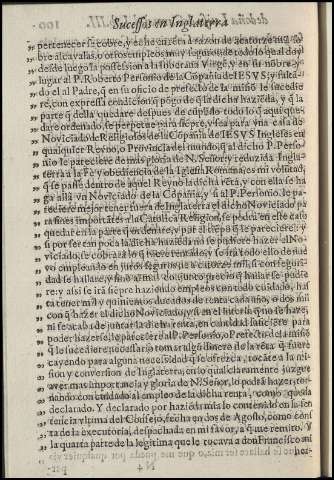 Sucessos en Inglaterra
pertenecer se cobre, y eche en renta a razon de a catorze mil, so
bre alcavalas, o otros empleos muy seguros: de todo lo qual doy
desde luego la possession a la soberana Virgẽ, y en su nõbre y
lugar al P. Roberto Personio de la Cõpañia de IESVS; y falta
do el al Padre, q̃ en su oficio de prefecto de la missiõ le sucedie
re, con expressa condicion, q̃ põgo de q̃ la dicha hazieda, y q̃ la
parte q̃ della quedare despues de cũplido todo lo q̃ aqui que
dare ordenado, se perpetue para siẽpre, y sea para vna casa de
Noviciado de Religiosos de la Cõpañia de IESVS Ingleses en
qualquier Reyno, o Provincia del mundo, q̃ al dicho P. Perso
nio le pareciere de mas gloria de N. Señor: y reduzida Ingla-
terra a la Fe y obediencia de la Iglesia Romana, es mi volutad,
q̃ se passe dentro de aquel Reyno la dicha reta, y con ella se ha
ga alla vn Noviciado de la Cõpañia, y si al P. Personio le pa-
reciere mejor tener fuera de Inglaterra el dicho Noviciado pa
ra fines importãtes a la Catolica Religion, se podra en esse caso
quedar en la parte q̃ ordenare, y por el tiẽpo q̃ le pareciere: y
si por ser tan poca la dicha hazienda no se pudiere hazer el No-
viciado, se cobrara lo q̃ tuvere rentado, y se irà todo ello de nue
vo empleando en juros seguros, a catorze mil, si con seguri-
dad se hallare, y sino al mas distinto precio q̃ hallar se pudie
re: y assi se irà siẽpre haziendo empleos con todo cuidado, has
ta tener mil y quinientos ducados de renta cada año, o dos mil
con q̃ hazer el dicho Noviciado, y si en el interin que no se haze,
ni se acaba de juntar la dicha renta, en cantidad suficiente para
poder hazerse, le pareciere al P. Personio, o Prefecto de la missiõ
q̃ le sucediere, ser necessario tomar algo dinero de la rẽta q̃ fuere
cayendo para alguna necessidad que se ofrezca, tocãte a la mis-
sion y conversion de Inglaterra, en lo qual claramente juzgare
aver mas importancia y gloria de N. Señor, lo podrà hazer, tor-
nando con cuidado al empleo de la dicha renta, como queda
declarado. Y declarado por hazieda mia lo contenido en la sen-
tencia vltima del Consejo, fecha en dos de Agosto, como cons
ta de la executoria, despachada en mi favor, a que me remito. Y
la quarta parte de la legitima que le tocava a don Francisco mi
N 4
her-